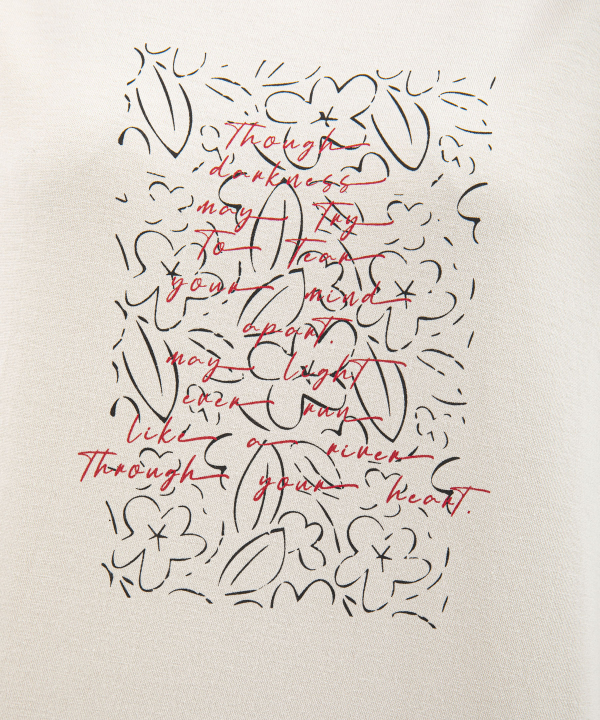 Though
darkness
may Try
To Tear
your mind
apart.
may light
ever run
like a river
Through your heart.